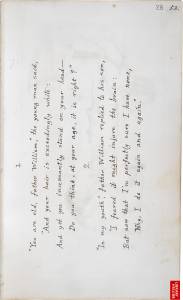 28 52.
1
"You are old, father William," the young man said,
"And your hair is exceedingly white:
And yet you incessantly stand on your head—
Do you think, at your age, it is right?"
2
"In my youth," father William replied to his son,
"I feared it might injure the brain:
But now that I'm perfectly sure I have none,
Why, I do it again and again."
BRITISH
LIBRARY